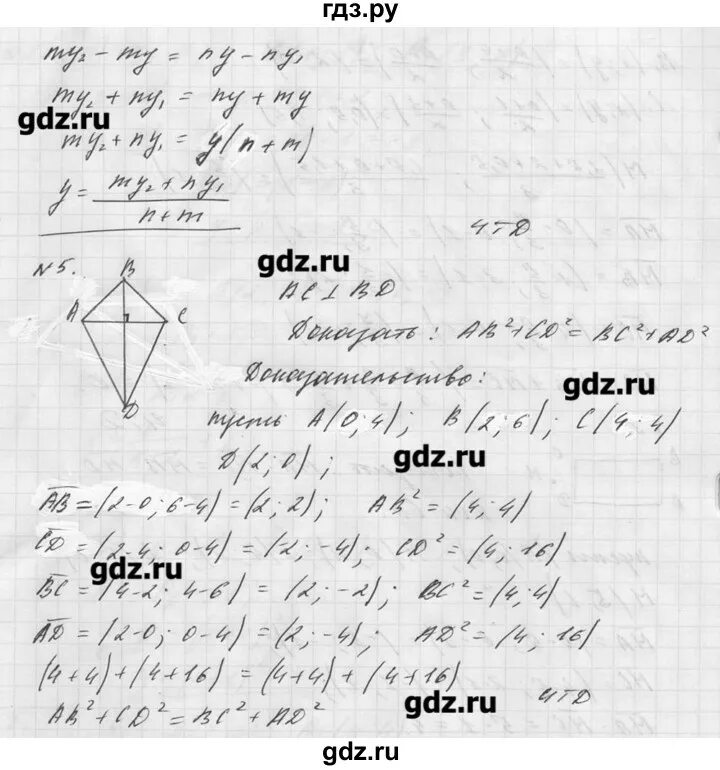 гдз.ру
my₂ − my = ny − ny₁
my₂ + ny₁ = ny + my
gdz.ru
my₂ + ny₁ = y(n + m)
y = (my₂ + ny₁)/(n + m)
ЧТД
gdz.ru
№5.
B
A
C
D
AC ⊥ BD
Доказать: AB² + CD² = BC² + AD²
Доказательство:
gdz.ru
пусть A(0; 4); B(2; 6); C(4; 4)
gdz.ru
D(2; 0);
AB = (2−0; 6−4) = (2; 2); AB² = (4; 4)
CD = (2−4; 0−4) = (−2; −4); CD² = (4; 16)
gdz.ru
BC = (4−2; 4−6) = (2; −2); BC² = (4; 4)
AD = (2−0; 0−4) = (2; −4); AD² = (4; 16)
(4+4) + (4+16) = (4+4) + (4+16)
gdz.ru
ЧТД
AB² + CD² = BC² + AD²
gdz.ru